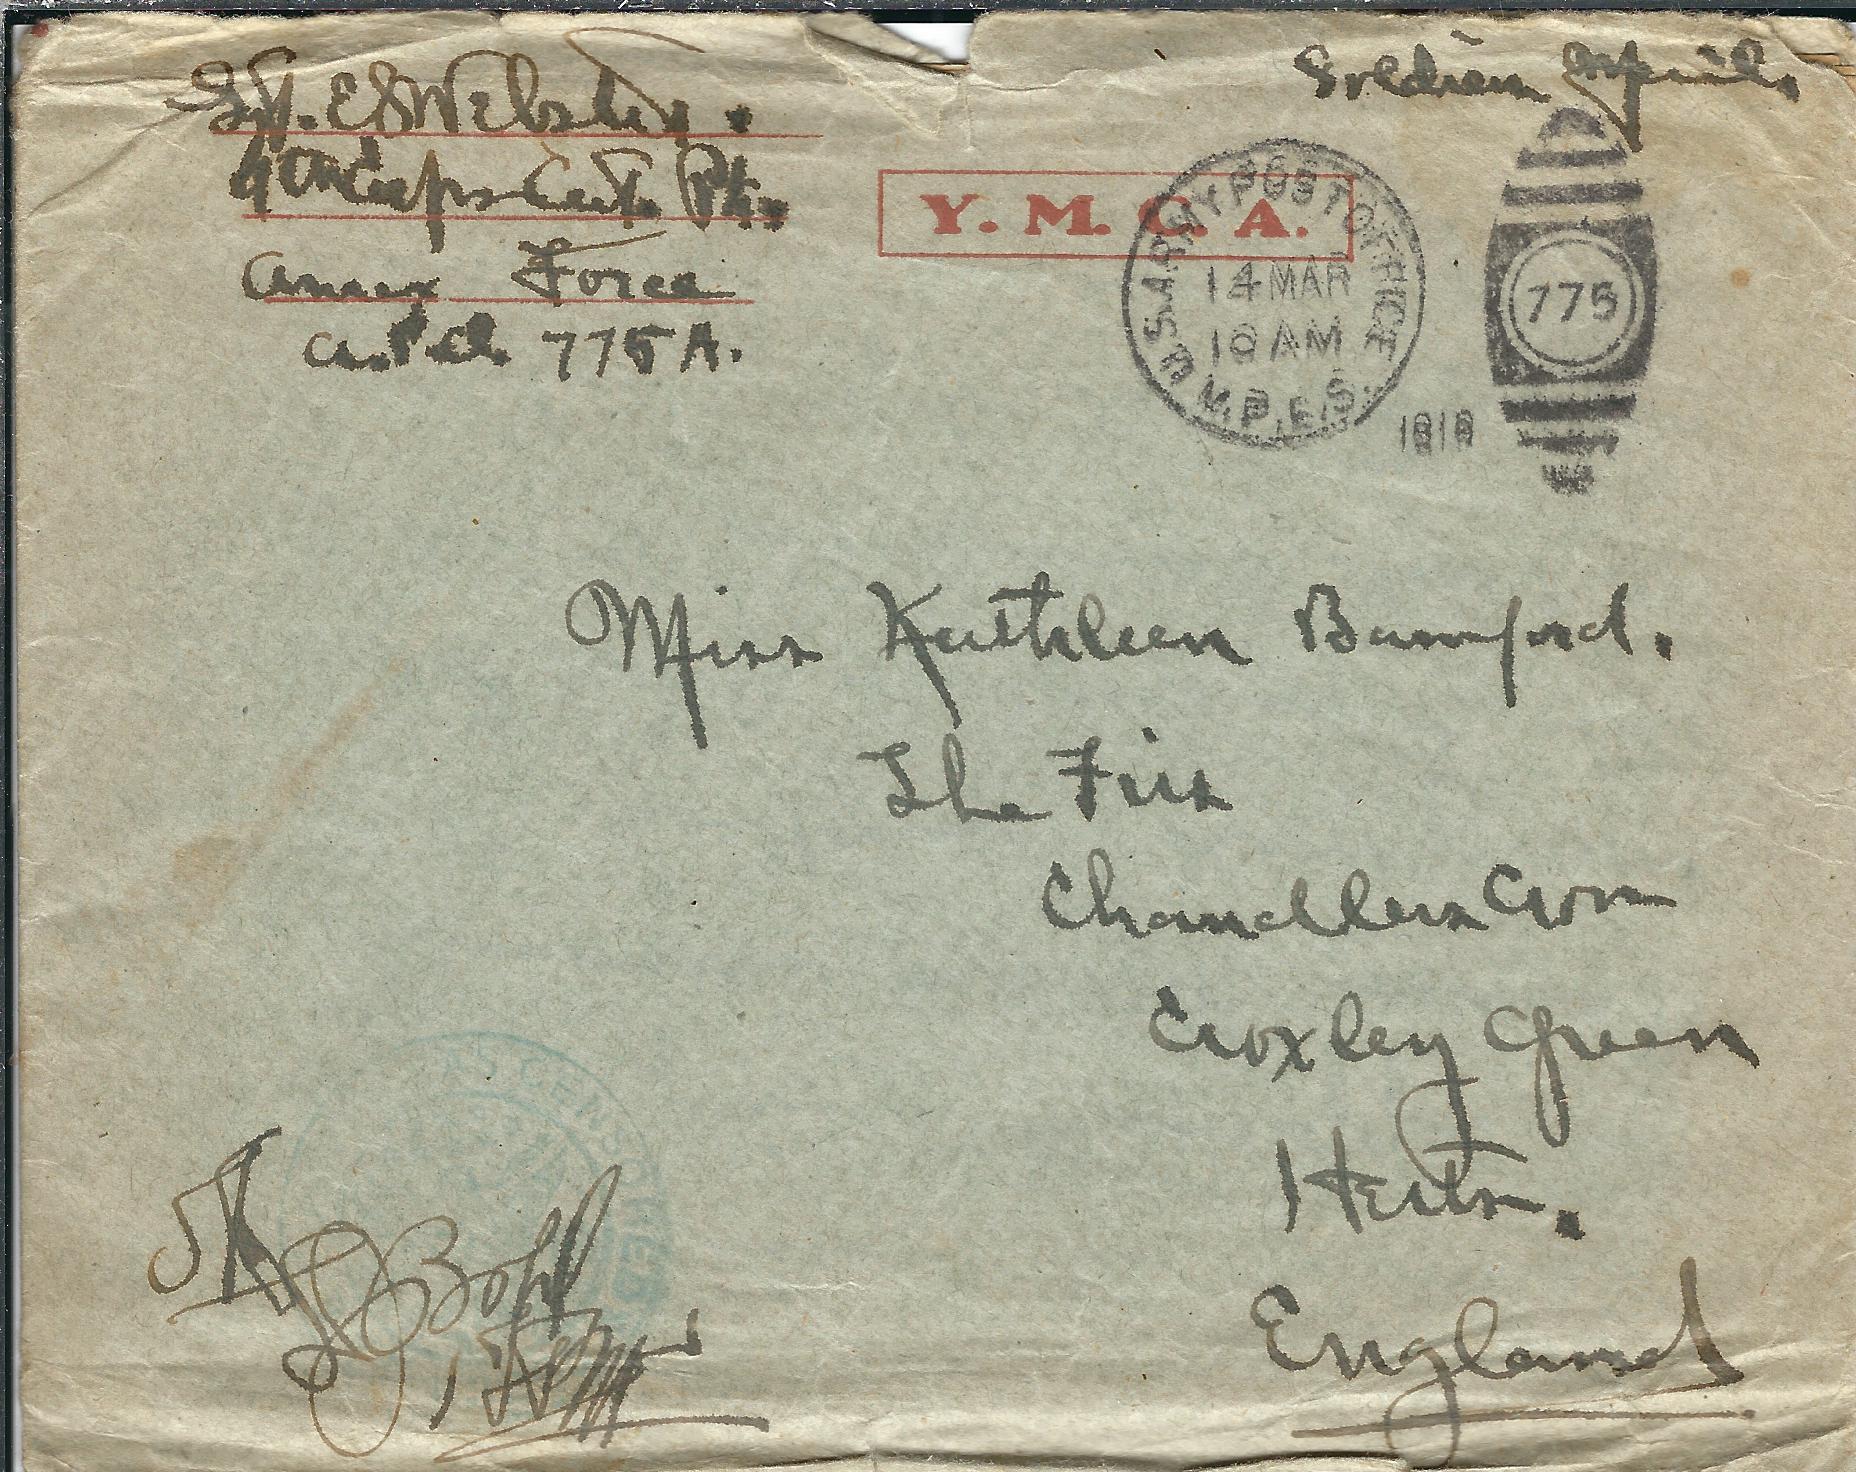 Sgt. E S Webster.
4th Corps Art. Pk.
Amex Force
A.P.O. 775 A.
Soldiers Mail.
Y. M. C. A.
U.S. ARMY POST OFFICE
14 MAR
10 AM
M.P.E.S.
1919
775
Miss Kathleen Bamford.
The Firs
Chandlers Cross
Croxley Green
Herts.
England
CENSORED